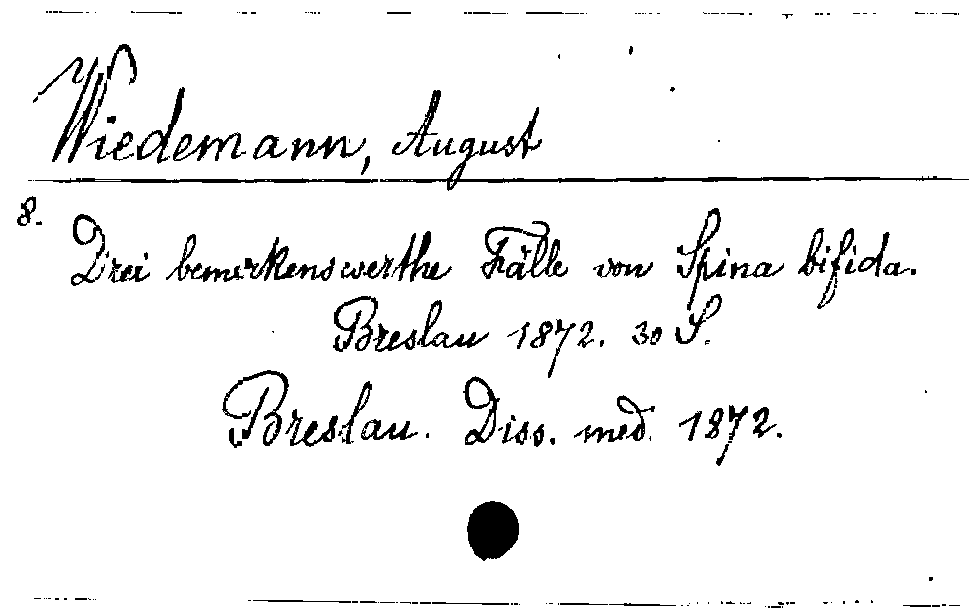 Wiedemann, August
8.
Drei bemerkenswerthe Fälle von Spina bifida.
Breslau 1872. 30 S.
Breslau. Diss. med. 1872.